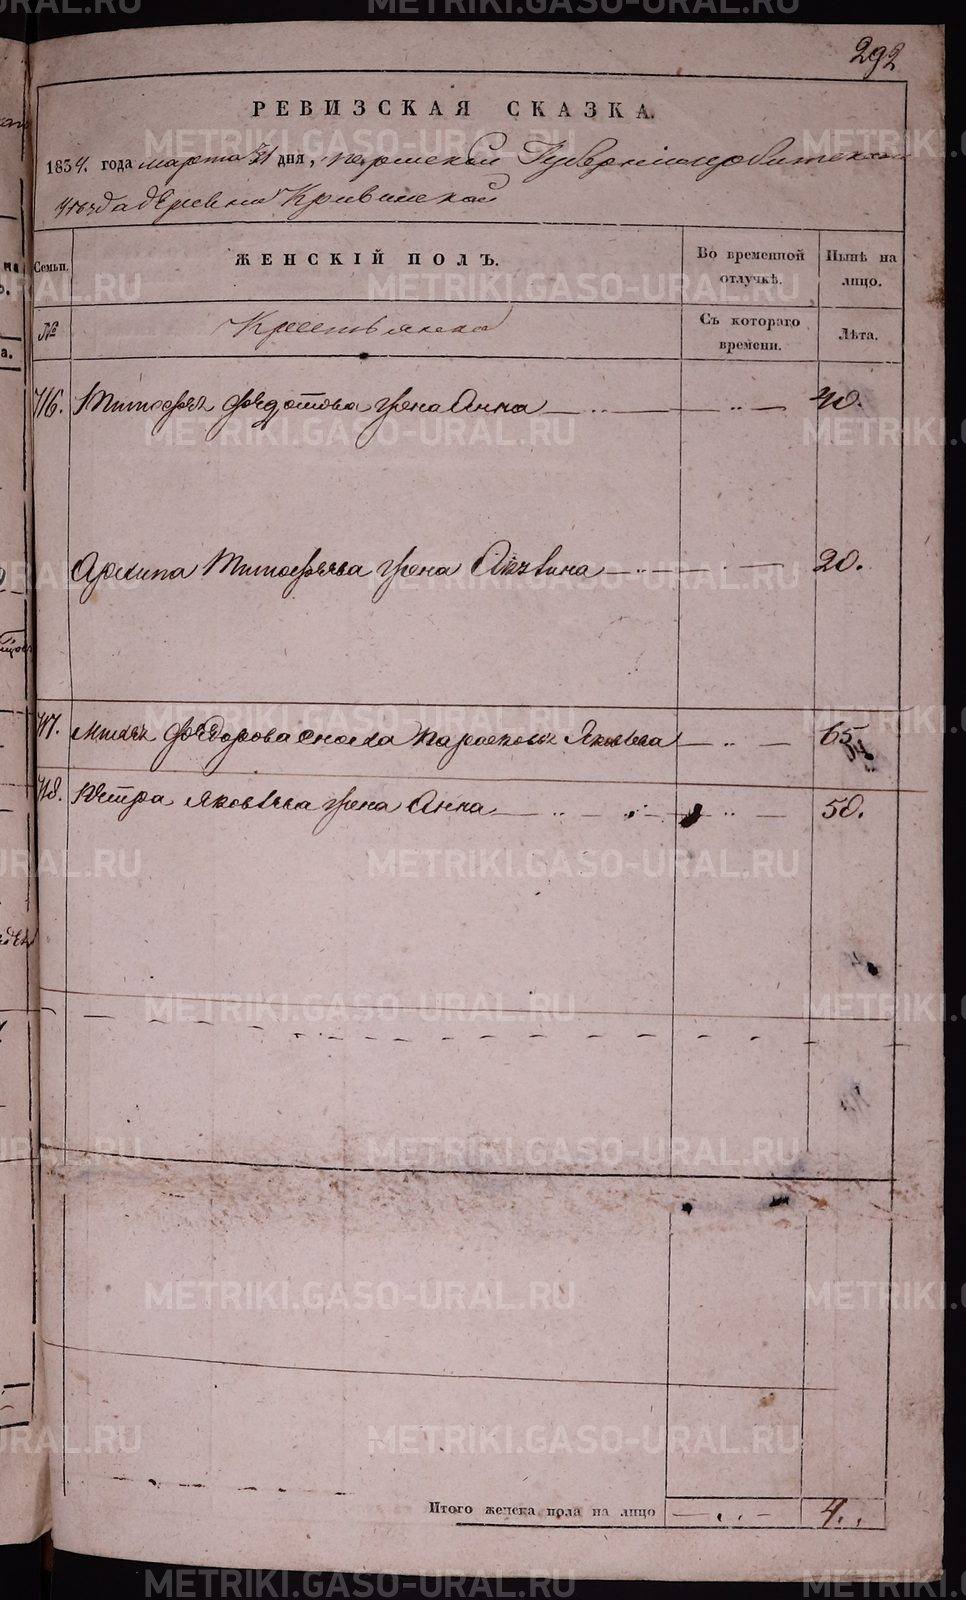 292
РЕВИЗСКАЯ СКАЗКА.
1834. года марта 31 дня, пермской Губернии ирбитскаго
уезда деревни Кривинской
Семьи. ЖЕНСКІЙ ПОЛЪ. Во временной отлучкѣ. Нынѣ на лицо.
№ Крестьянска Съ котораго времени. Лѣта.
716. Тимофея Федотова жена Анна 40.
Архипа Тимофеева жена 20.
717. Федорова Яковлева 65
718. Петра Яковлева жена Анна 50.
Итого женска пола на лицо 4.
METRIKI.GASO-URAL.RU